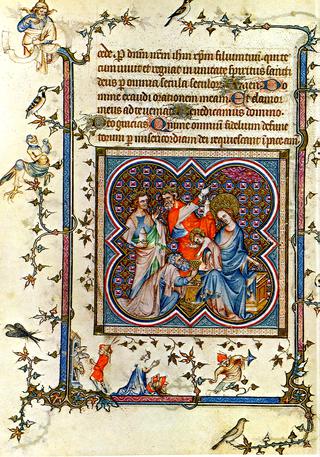 cede. P dnm nrm ihm xpm filium tuu qui te
cum vivit et regnat in unitate spiritus sancti
deus p omnia secula seculor. Amen. Do
mine exaudi orationem meam. Et clamor
meus ad te veniat. Benedicamus domino.
Deo gracias. omnium fidelium defunc
torum p misericordiam dei requiescant